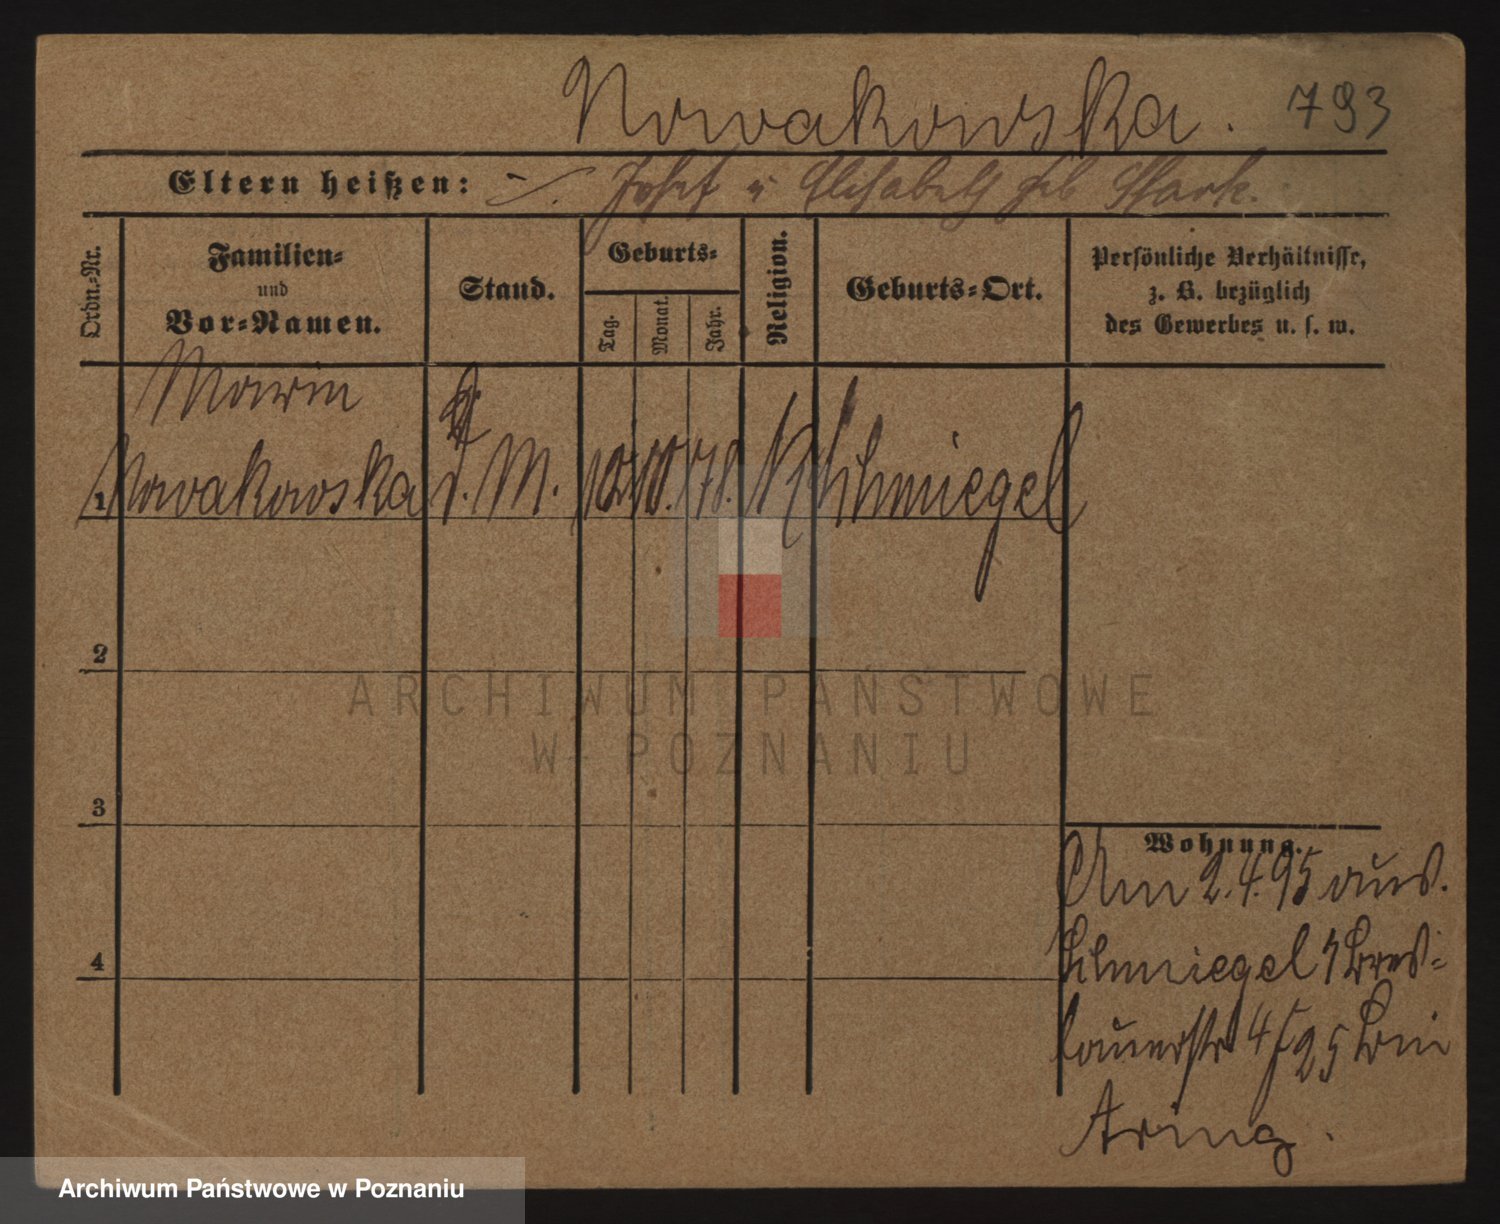 Nowakowska. 793
Eltern heißen: Josef u Elisabeth geb
Ordn.-Nr.
Familien-
und
Vor-Namen.
Stand.
Geburts-
Tag.
Monat.
Jahr.
Religion.
Geburts-Ort.
Persönliche Verhältnisse,
z. B. bezüglich
des Gewerbes u. s. w.
Marie
1 Nowakowska d. M. 10. 78. Schmiegel
2
3
4
Wohnung.
Am 2.4.95 aus.
Schmiegel Bres-
lauerstr bei
Aring.
ARCHIWUM PAŃSTWOWE
W POZNANIU
Archiwum Państwowe w Poznaniu